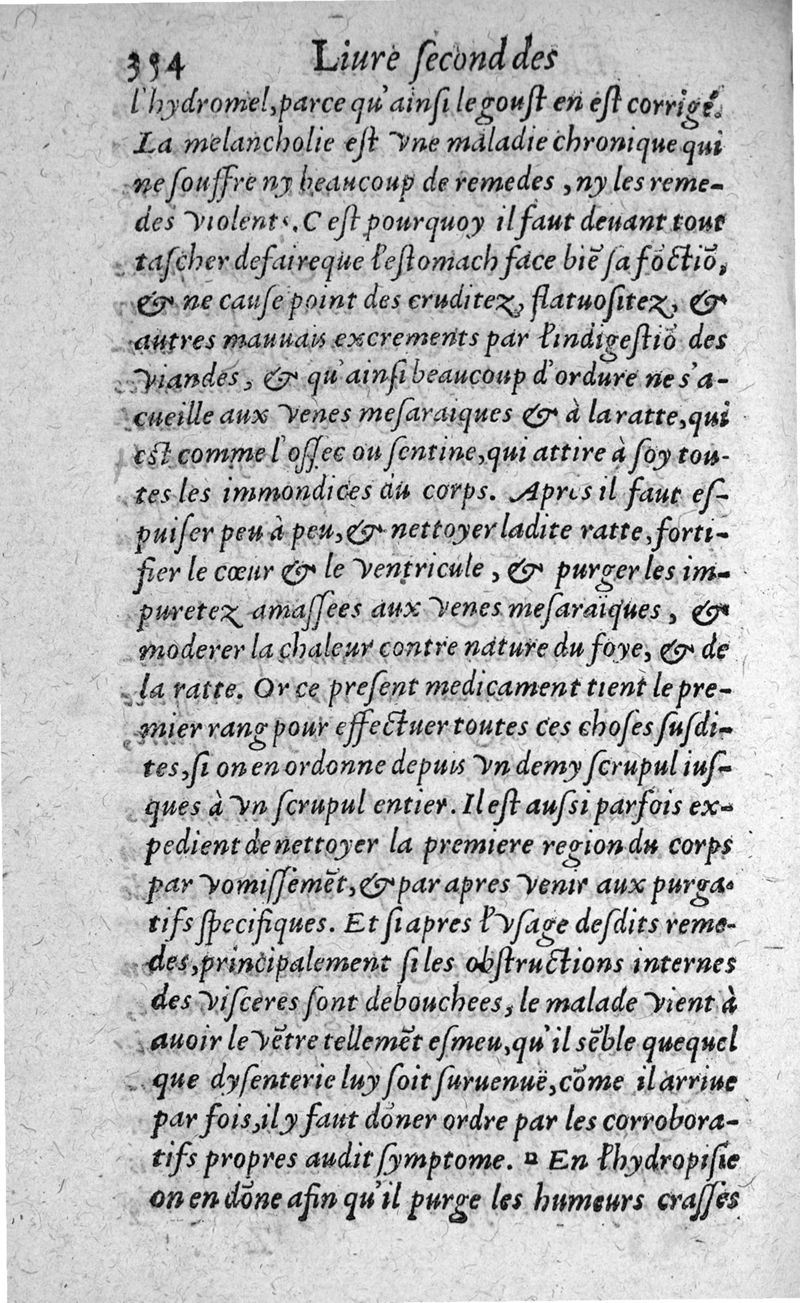 354 Liure ſecond des
l'hydromel, parce qu'ainſi le gouſt en eſt corrigé.
La melancholie eſt vne maladie chronique qui
ne ſouffre ny beaucoup de remedes, ny les reme-
des violents. C'eſt pourquoy il faut deuant tout
taſcher de faire que l'eſtomach face biē ſa fōctiō,
& ne cauſe point des cruditez, flatuoſitez, &
autres mauuais excrements par l'indigeſtiō des
viandes, & qu'ainſi beaucoup d'ordure ne s'a-
cueille aux venes meſaraiques & à la ratte, qui
eſt comme l'oſſec ou ſentine, qui attire à ſoy tou-
tes les immondices du corps. Apres il faut eſ-
puiſer peu à peu, & nettoyer ladite ratte, forti-
fier le cœur & le ventricule, & purger les im-
puretez amaſſees aux venes meſaraïques, &
moderer la chaleur contre nature du foye, & de
la ratte. Or ce preſent medicament tient le pre-
mier rang pour effectuer toutes ces choſes ſuſdi-
tes, ſi on en ordonne depuis vn demy ſcrupul iuſ-
ques à vn ſcrupul entier. Il eſt auſſi parfois ex-
pedient de nettoyer la premiere region du corps
par vomiſſemēt, & par apres venir aux purga-
tifs ſpecifiques. Et ſi apres l'vſage deſdits reme-
des, principalement ſi les obſtructions internes
des viſceres ſont debouchees, le malade vient à
auoir le vētre tellemēt eſmeu, qu'il sēble quequel
que dyſenterie luy ſoit ſuruenuë, cōme il arriue
par fois, il y faut dōner ordre par les corrobora-
tifs propres audit ſymptome. ¤ En l'hydropiſie
on en dōne afin qu'il purge les humeurs craſſes